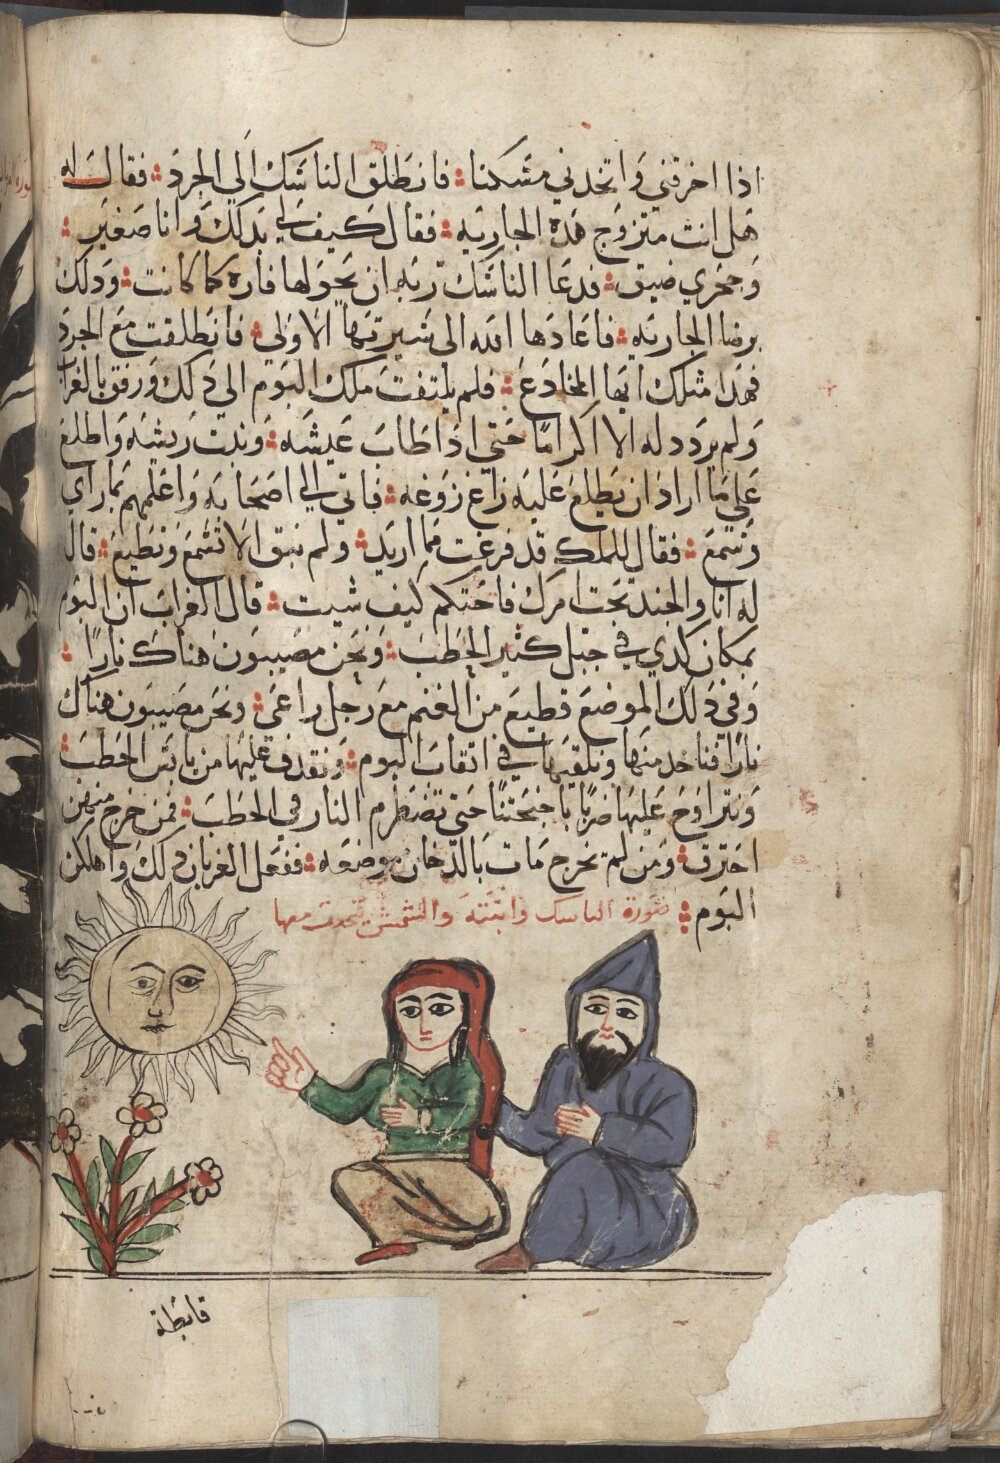 اذا اخرقني وَاتخدني مَسَكنا ؛ فانطَلق الناسَك اَلي الجرد ؛ فقالَ له
هَل انت متزوج هَده الجاريَه ؛ فقال كَيف لي بدَلكَ وَانا صَغيَر ؛
وَحجَري ضيق ؛ فدعَا الناسَك رَبَه ان يحَوَلها فاره كما كانت ؛ وَدلك
برضا الجاريَه ؛ فاعَادَها الله الى سَيرتهَا الاوَلى ؛ فانَطلقت مَع الجرَد
فهَدا مَثلك ايهَا المخادَع ؛ فلم يلتفتَ مَلك البَوم الى دَلك وَرفق بالغراب
وَلم يَردَد له الا اكرامًا حَتي ادَا طَابَ عَيشَه ؛ وَنبت رَيشَه وَاطلعَ
عَلي مَا ارادَ ان يَطلعَ عَليَه زاغ زوَغه ؛ فاتي الى اصَحَابَه وَاعَلمهم بمَا راي
وَسَمعَ ؛ فقال للملك قد فرغت ممَا اريَد ؛ وَلم يبق الاَ تسَمعَ وَتطَيعَ ؛ قال
له انا وَالجند تحَت امرَك فاحَتكم كيَف شيت ؛ قال الغرابَ ان البَوم
بمَكان كدي في جبَل كثير الحَطَبَ ؛ وَنحَن مصَيبَون هناك نارًا ؛
وَفي دَلك الموضعَ قطيعَ من الغنم معَ رَجل راعَي ؛ وَنحَن مصَيبَون هناك
نارًا فناخد منهَا وَنلقيهَا في اثقابَ البَوم ؛ وَنقدف عَليهَا من يابَس الحَطَبَ ؛
وَنتراوَحَ عَليهَا ضربًا باجنحَتنا حَتي تضَطرم النار في الحَطَبَ ؛ فمَن خرج منهن
احَترق ؛ وَمَن لم يخرج مَات بَالدخان مَوضعَه ؛ ففعَل الغربَان دَلك وَاهلكن
البَوم ؛ صَورة الناسك وَابنتهَ وَالشمسَ يتحَدت معها
قابَطَة